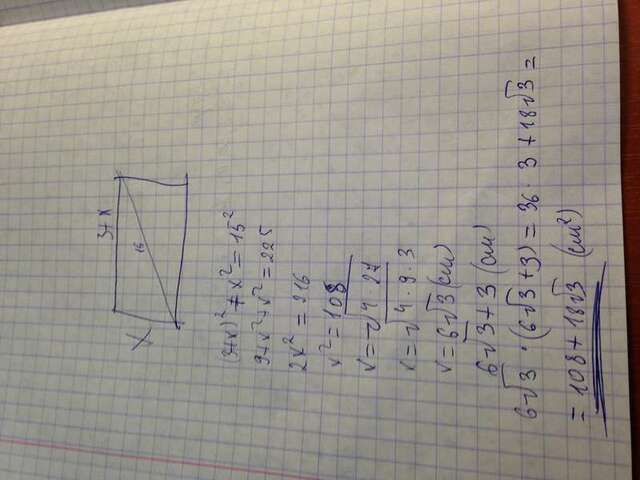 3+x
15
x
(3+x)² + x² = 15²
9+x²+x² = 225
2x² = 216
x² = 108
x = √4·27
x = √4·9·3
x = 6√3 (см)
6√3+3 (см)
6√3 · (6√3+3) = 36·3+18√3 =
= 108+18√3 (см²)